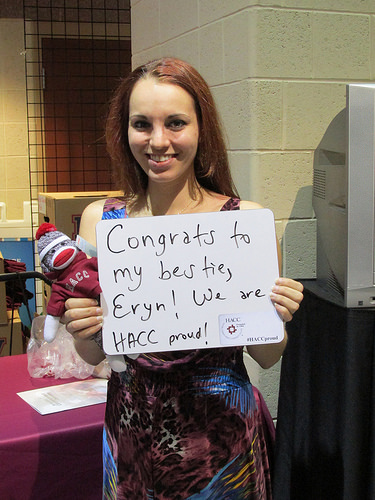 Congrats to
my bestie,
Eryn! We are
HACC proud!
HACC
#HACCproud
HACC